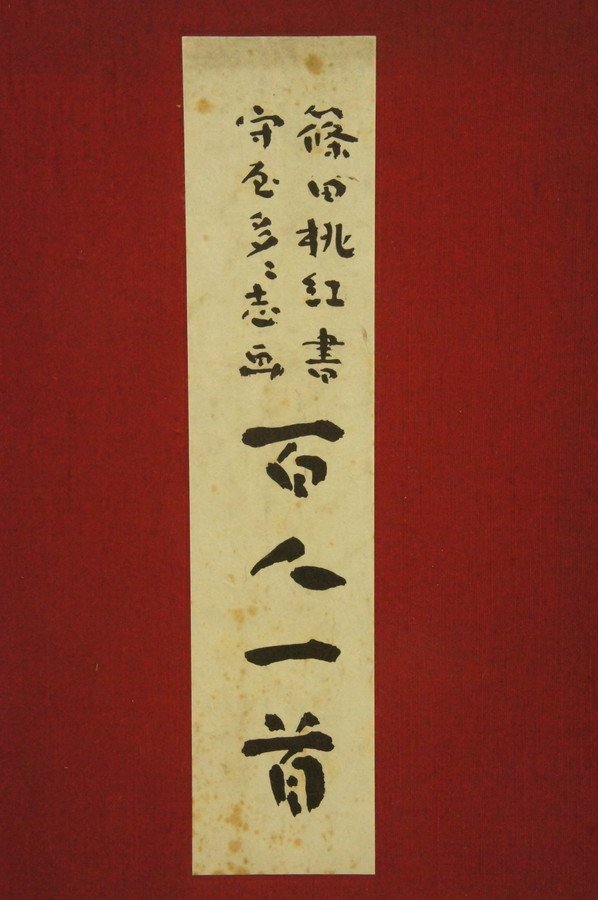 篠田桃紅書
守屋多々志画
百人一首